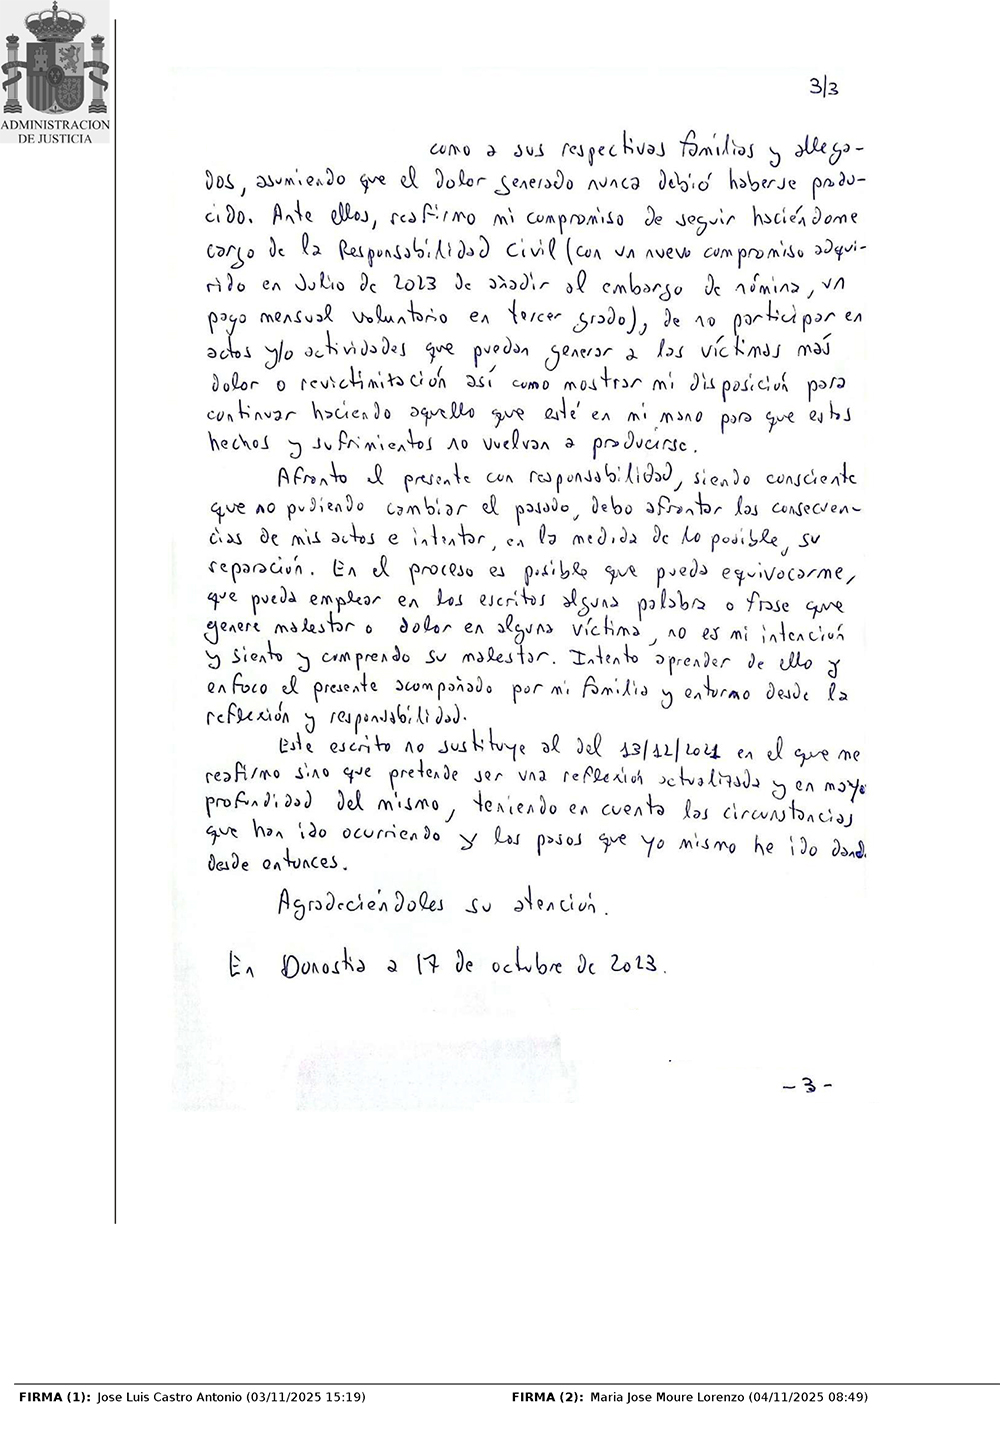 ADMINISTRACION
DE JUSTICIA
3/3
como a sus respectivas familias y allega-
dos, asumiendo que el dolor generado nunca debió haberse produ-
cido. Ante ellos, reafirmo mi compromiso de seguir haciéndome
cargo de la Responsabilidad Civil (con un nuevo compromiso adqui-
rido en Julio de 2023 de añadir al embargo de nómina, un
pago mensual voluntario en tercer grado), de no participar en
actos y/o actividades que puedan generar a las víctimas más
dolor o revictimización así como mostrar mi disposición para
continuar haciendo aquello que esté en mi mano para que estos
hechos y sufrimientos no vuelvan a producirse.
Afronto el presente con responsabilidad, siendo consciente
que no pudiendo cambiar el pasado, debo afrontar las consecuen-
cias de mis actos e intentar, en la medida de lo posible, su
reparación. En el proceso es posible que pueda equivocarme,
que pueda emplear en los escritos alguna palabra o frase que
genere malestar o dolor en alguna víctima, no es mi intención
y siento y comprendo su malestar. Intento aprender de ello y
enfoco el presente acompañado por mi familia y entorno desde la
reflexión y responsabilidad.
Este escrito no sustituye al del 13/12/2021 en el que me
reafirmo sino que pretende ser una reflexión actualizada y en mayo
profundidad del mismo, teniendo en cuenta las circunstancias
que han ido ocurriendo y los pasos que yo mismo he ido dand
desde entonces.
Agradeciéndoles su atención.
En Donostia a 17 de octubre de 2023.
- 3 -
FIRMA (1): Jose Luis Castro Antonio (03/11/2025 15:19) FIRMA (2): Maria Jose Moure Lorenzo (04/11/2025 08:49)